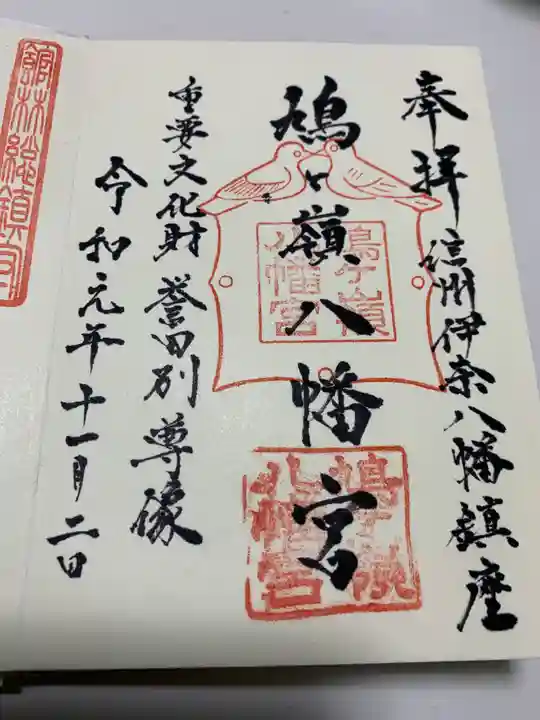 奉拝
信州伊奈八幡鎮座
鳩ヶ嶺八幡宮
鳩ヶ嶺
八幡宮
鳩ヶ嶺
八幡宮
重要文化財 誉田別尊像
令和元年十一月二日
館林総鎮守